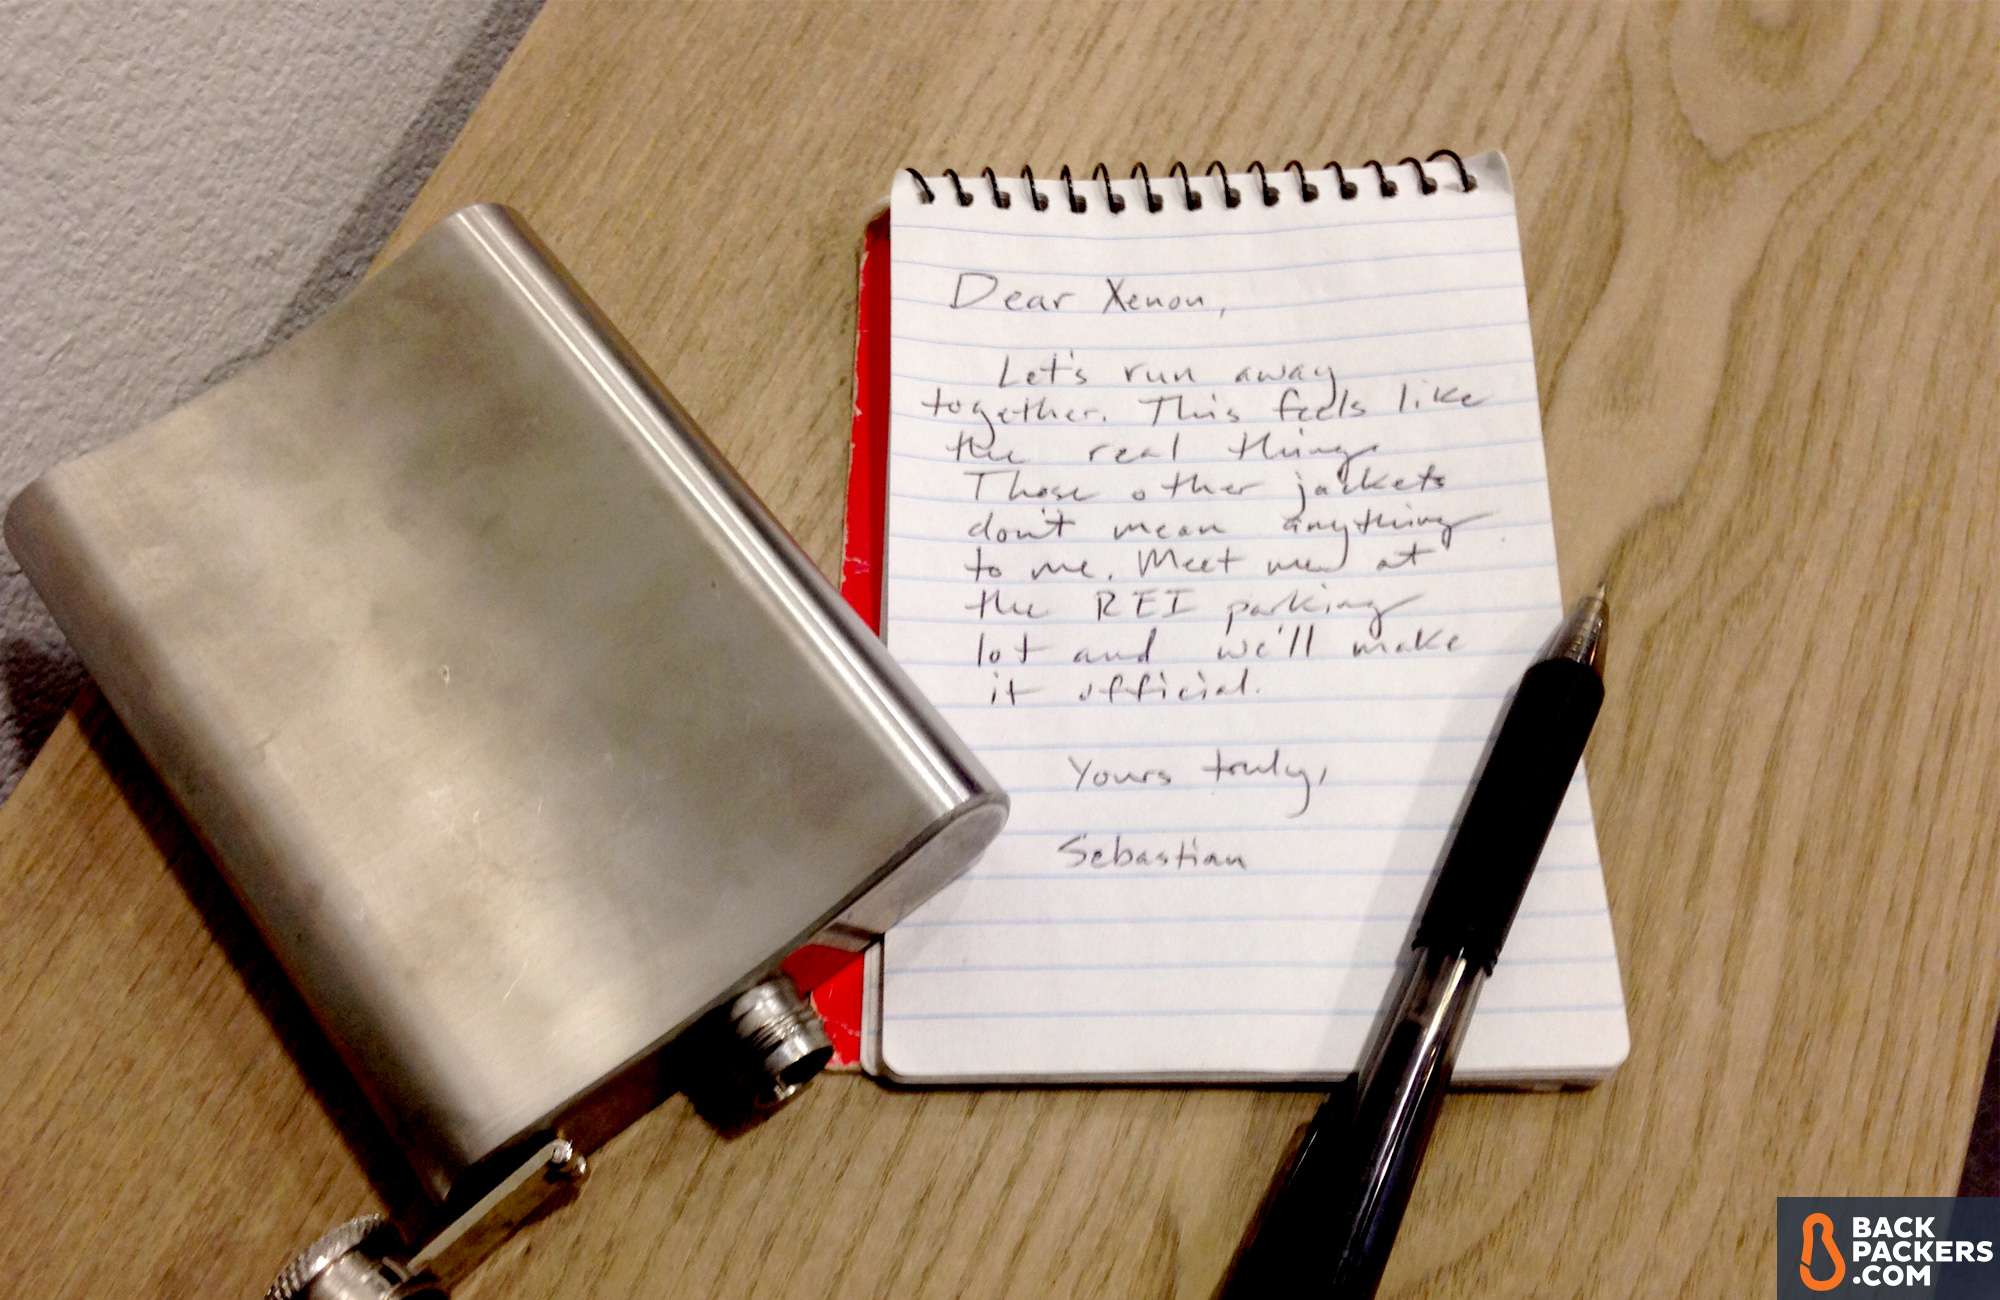 Dear Xenon,
Let's run away
together. This feels like
the real thing.
Those other jackets
don't mean anything
to me. Meet me at
the REI parking
lot and we'll make
it official.
Yours truly,
Sebastian
BACK
PACKERS
.COM